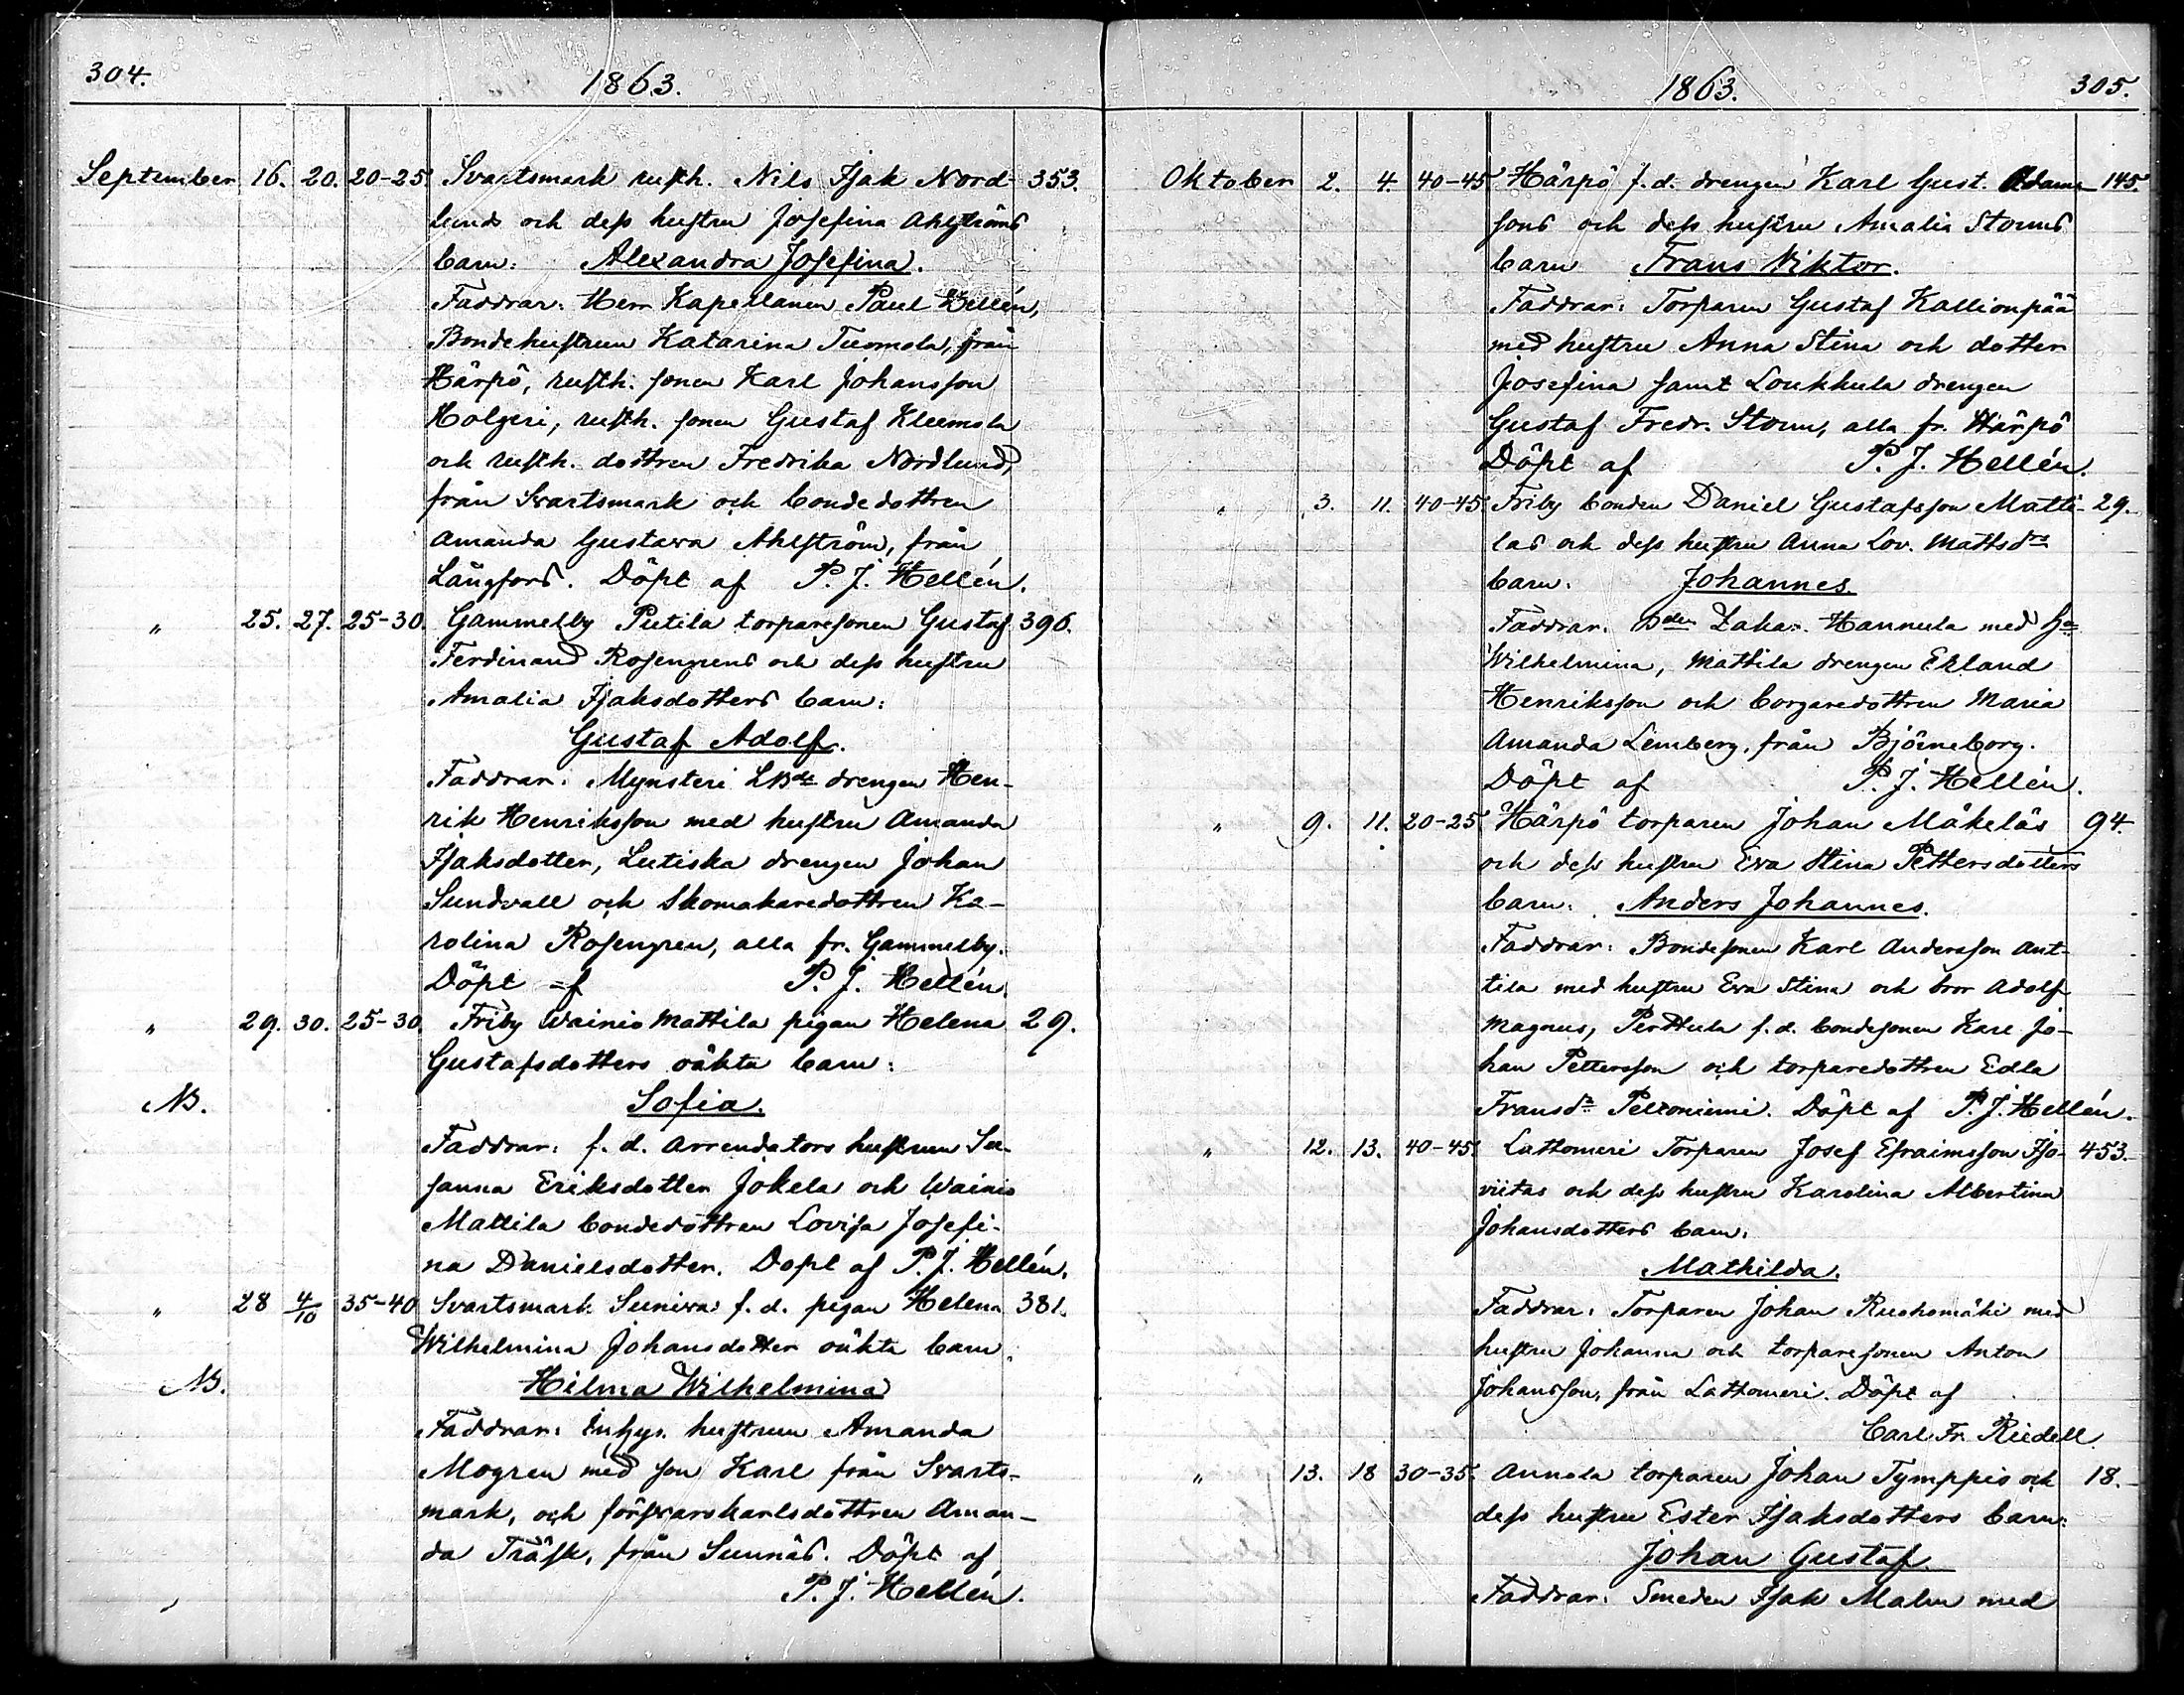 304.
1863.
September 16. 20. 20-25 Svartsmark rusth. Nils Isak Nord- 353.
lunds och dess hustru Josefina Ahlströms
barn: Alexandra Josefina.
Faddrar: Herr Kapellanen Paul Hellén,
Bondehustrun Katarina Tuomola, från
Härpö, rusth. sonen Karl Johansson
Holgeri, rusth. sonen Gustaf Kleemola
och rusth. dottren Fredrika Nordlund,
från Svartsmark och bondedottren
Amanda Gustava Ahlström, från
Långfors. Döpt af P. J. Hellén.
" 25. 27. 25-30. Gammelby Pietila torparesonen Gustaf 396.
Ferdinand Rosengrens och dess hustru
Amalia Isaksdotters barn:
Gustaf Adolf.
Faddrar: Mynsteri drengen Hen-
rik Henriksson med hustru Amanda
Isaksdotter, Lutiska drengen Johan
Sundvall och Skomakaredottren Ka-
rolina Rosengren, alla fr. Gammelby.
Döpt af P. J. Hellén.
" 29. 30. 25-30. Friby Wainio Mattila pigan Helena 29.
Gustafsdotters oäkta barn:
NB. Sofia.
Faddrar: f. d. Arrendators hustrun Su-
sanna Eriksdotter Jokela och Wainio
Mattila bondedottren Lovisa Josefi-
na Danielsdotter. Döpt af P. J. Hellén.
" 28 4/10 35-40 Svartsmark Suniva f. d. pigan Helena 381.
Wilhelmina Johansdotter oäkta barn.
NB. Hilma Wilhelmina
Faddrar: Inhys. hustrun Amanda
Mogren med son Karl från Svarts-
mark, och försvarskarlsdottren Aman-
da Träsk, från Sunnäs. Döpt af
P. J. Hellén.
1863.
305.
Oktober 2. 4. 40-45 Härpö f. d. drengen Karl Gust. Adams- 145.
sons och dess hustru Amalia Storms
barn Frans Viktor.
Faddrar: Torparen Gustaf Kallionpää
med hustru Anna Stina och dotter
Josefina samt Loukkula drengen
Gustaf Fredr. Storm, alla fr. Härpö
Döpt af P. J. Hellén.
" 3. 11. 40-45 Friby bonden Daniel Gustafsson Matti- 29.
las och dess hustru Anna Lov. Mattsdrs
barn: Johannes.
Faddrar: Bden Zakar. Hannula med
Wilhelmina, Mattila drengen Erland
Henriksson och borgaredottren Maria
Amanda Lemberg, från Björneborg.
Döpt af P. J. Hellén.
" 9. 11. 20-25 Härpö torparen Johan Mäkeläs 94.
och dess hustru Eva Stina Pettersdotters
barn: Anders Johannes.
Faddrar: Bondesonen Karl Andersson Ant-
tila med hustru Eva Stina och bror Adolf
Magnus, Perttula f. d. bondesonen Karl Jo-
han Pettersson och torparedottren Edla
Fransdr Peltoniemi. Döpt af P. J. Hellén.
" 12. 13. 40-45. Lattomeri Torparen Josef Efraimsson Iso- 453.
viitas och dess hustru Karolina Albertina
Johansdotters barn:
Mathilda.
Faddrar: Torparen Johan Ruohomäki med
hustru Johanna och torparesonen Anton
Johansson, från Lattomeri. Döpt af
Carl Fr. Riedell.
" 13. 18 30-35. Annola torparen Johan Tymppis och 18.
dess hustru Ester Isaksdotters barn:
Johan Gustaf.
Faddrar: Smeden Isak Malm med